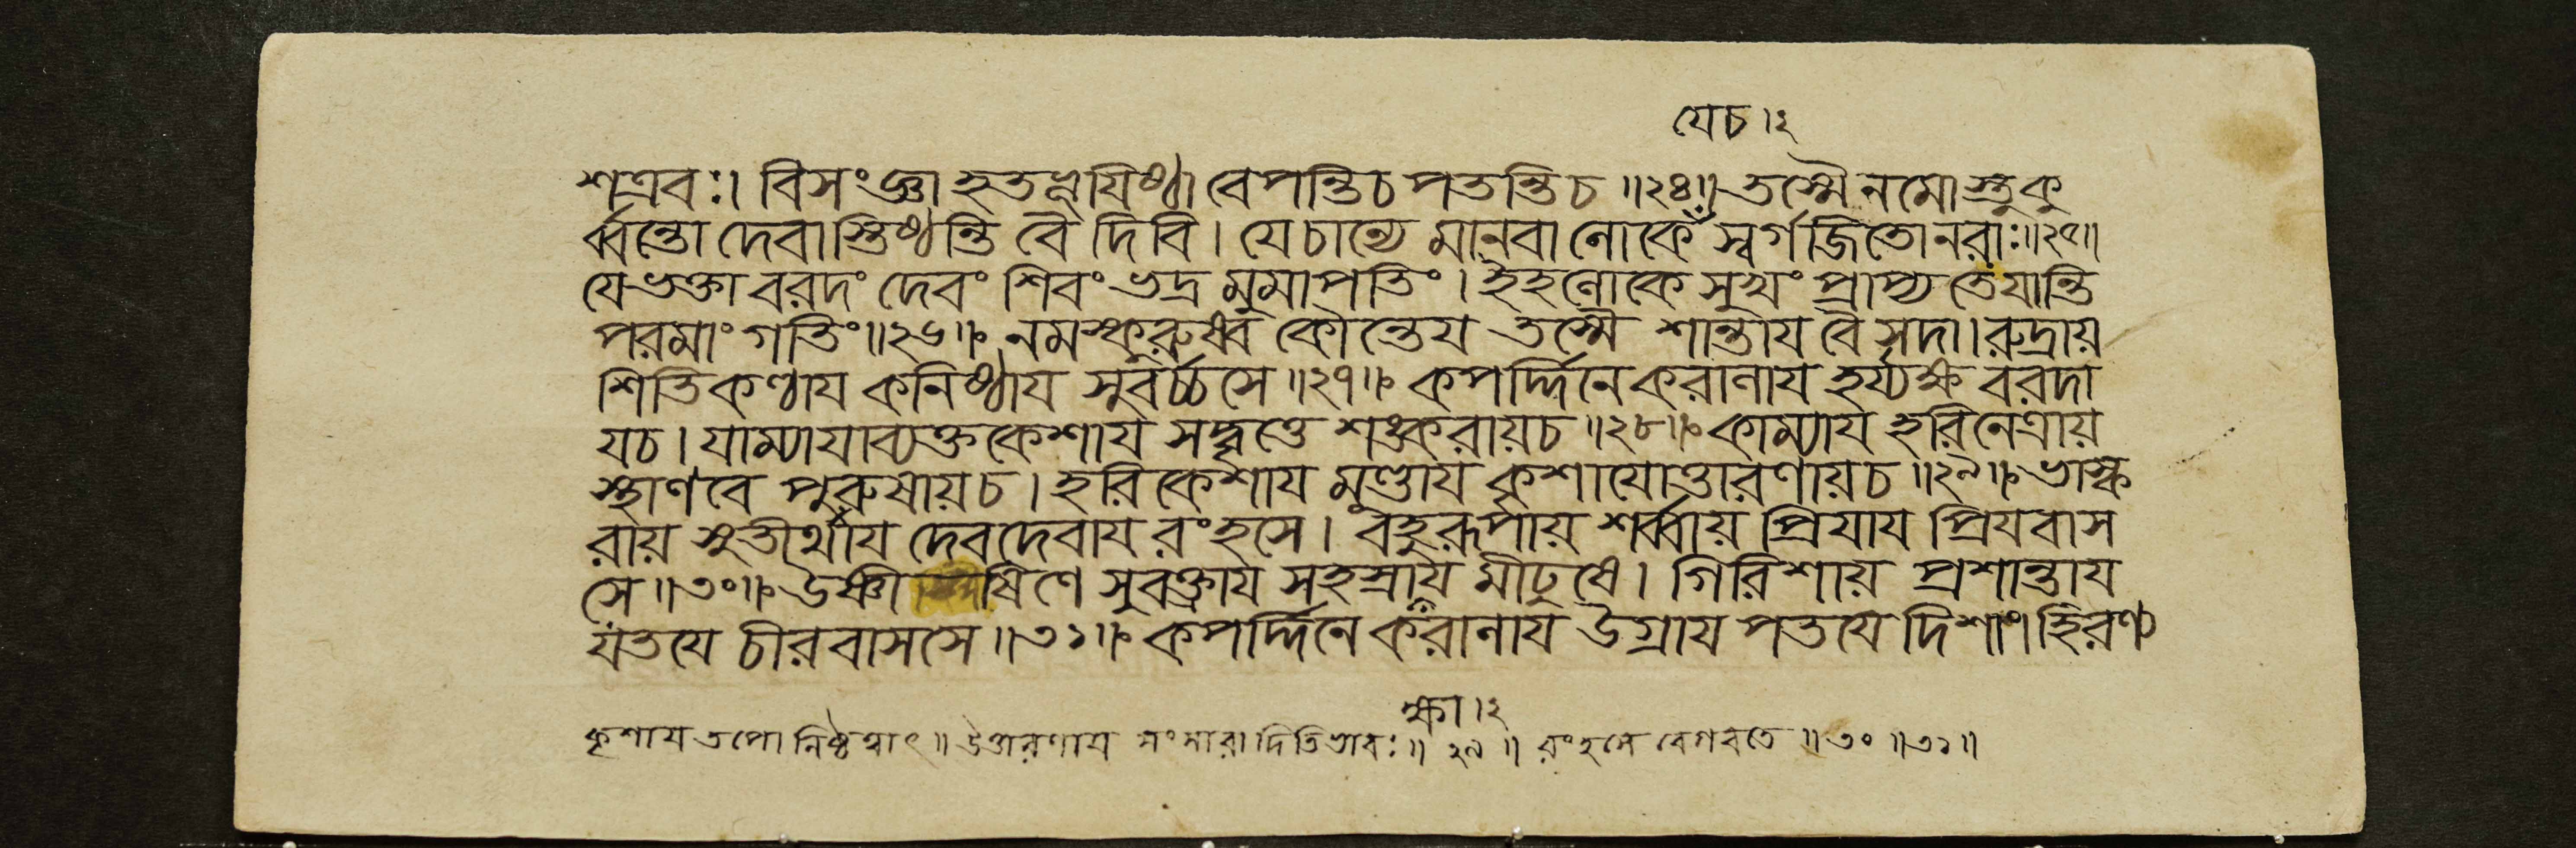 যেচ।২
শত্রবঃ। বিসংজ্ঞা হতভূয়িষ্ঠা বেপন্তিচ পতন্তিচ॥২৪॥ তস্মৈ নমোস্তুকু
র্ব্বন্তো দেবাস্তিষ্ঠন্তি বৈ দিবি। যে চান্যে মানবা লোকে স্বর্গজিতো নরাঃ॥২৫॥
যে ভক্তা বরদং দেবং শিবং ভদ্র মুমাপতিং। ইহলোকে সুখং প্রাপ্য তে যান্তি
পরমাং গতিং॥২৬॥ নমস্কুরুষ্ব কৌন্তেয় তস্মৈ শান্তায় বৈ সদা। রুদ্রায়
শিতিকণ্ঠায় কনিষ্ঠায় সুবর্চ্চসে॥২৭॥ কপর্দ্দিনে করালায় হর্য্যক্ষ বরদা
যচ। যাম্যাযাব্যক্তকেশায় সদ্বৃত্তে শঙ্করায়চ॥২৮॥ কাম্যায় হরিনেত্রায়
স্থাণবে পুরুষায়চ। হরিকেশায় মুণ্ডায় কৃশাযোত্তারণায়চ॥২৯॥ ভাস্ক
রায় সুতীর্থায় দেবদেবায় রংহসে। বহুরূপায় শর্ব্বায় প্রিযায় প্রিযবাস
সে॥৩০॥ উষ্ণী ষিণে সুবক্ত্রায় সহস্রায় মীঢুষে। গিরিশায় প্রশান্তায়
যতযে চীরবাসসে॥৩১॥ কপর্দ্দিনে করালায় উগ্রায় পতযে দিশাং। হিরণ্য
ক্ষা।২
কৃশায় তপোনিষ্ঠত্বাৎ॥ উত্তারণায় সংসারাদিতিভাবঃ॥২৯॥ রংহসে বেগবতে॥৩০॥৩১॥